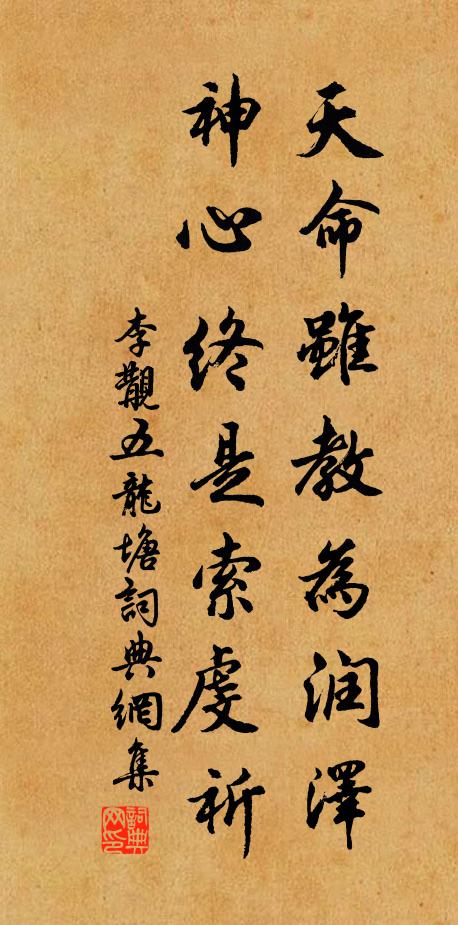 天命雖教為润澤
神心終是索虔祈
李覯五龍塘詞典網集
詞典网印